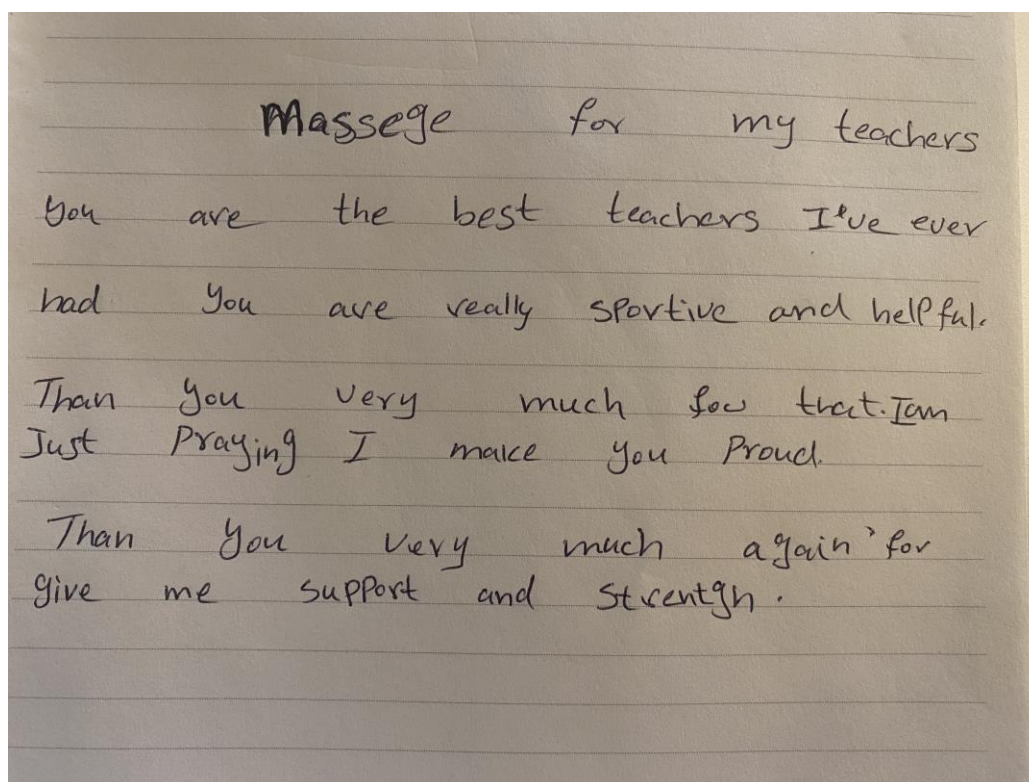 Massege for my teachers
you are the best teachers I've ever
had you are really sportive and helpful.
Than you very much for that. I am
Just Praying I make you Proud.
Than you very much again, for
give me support and strentgh.